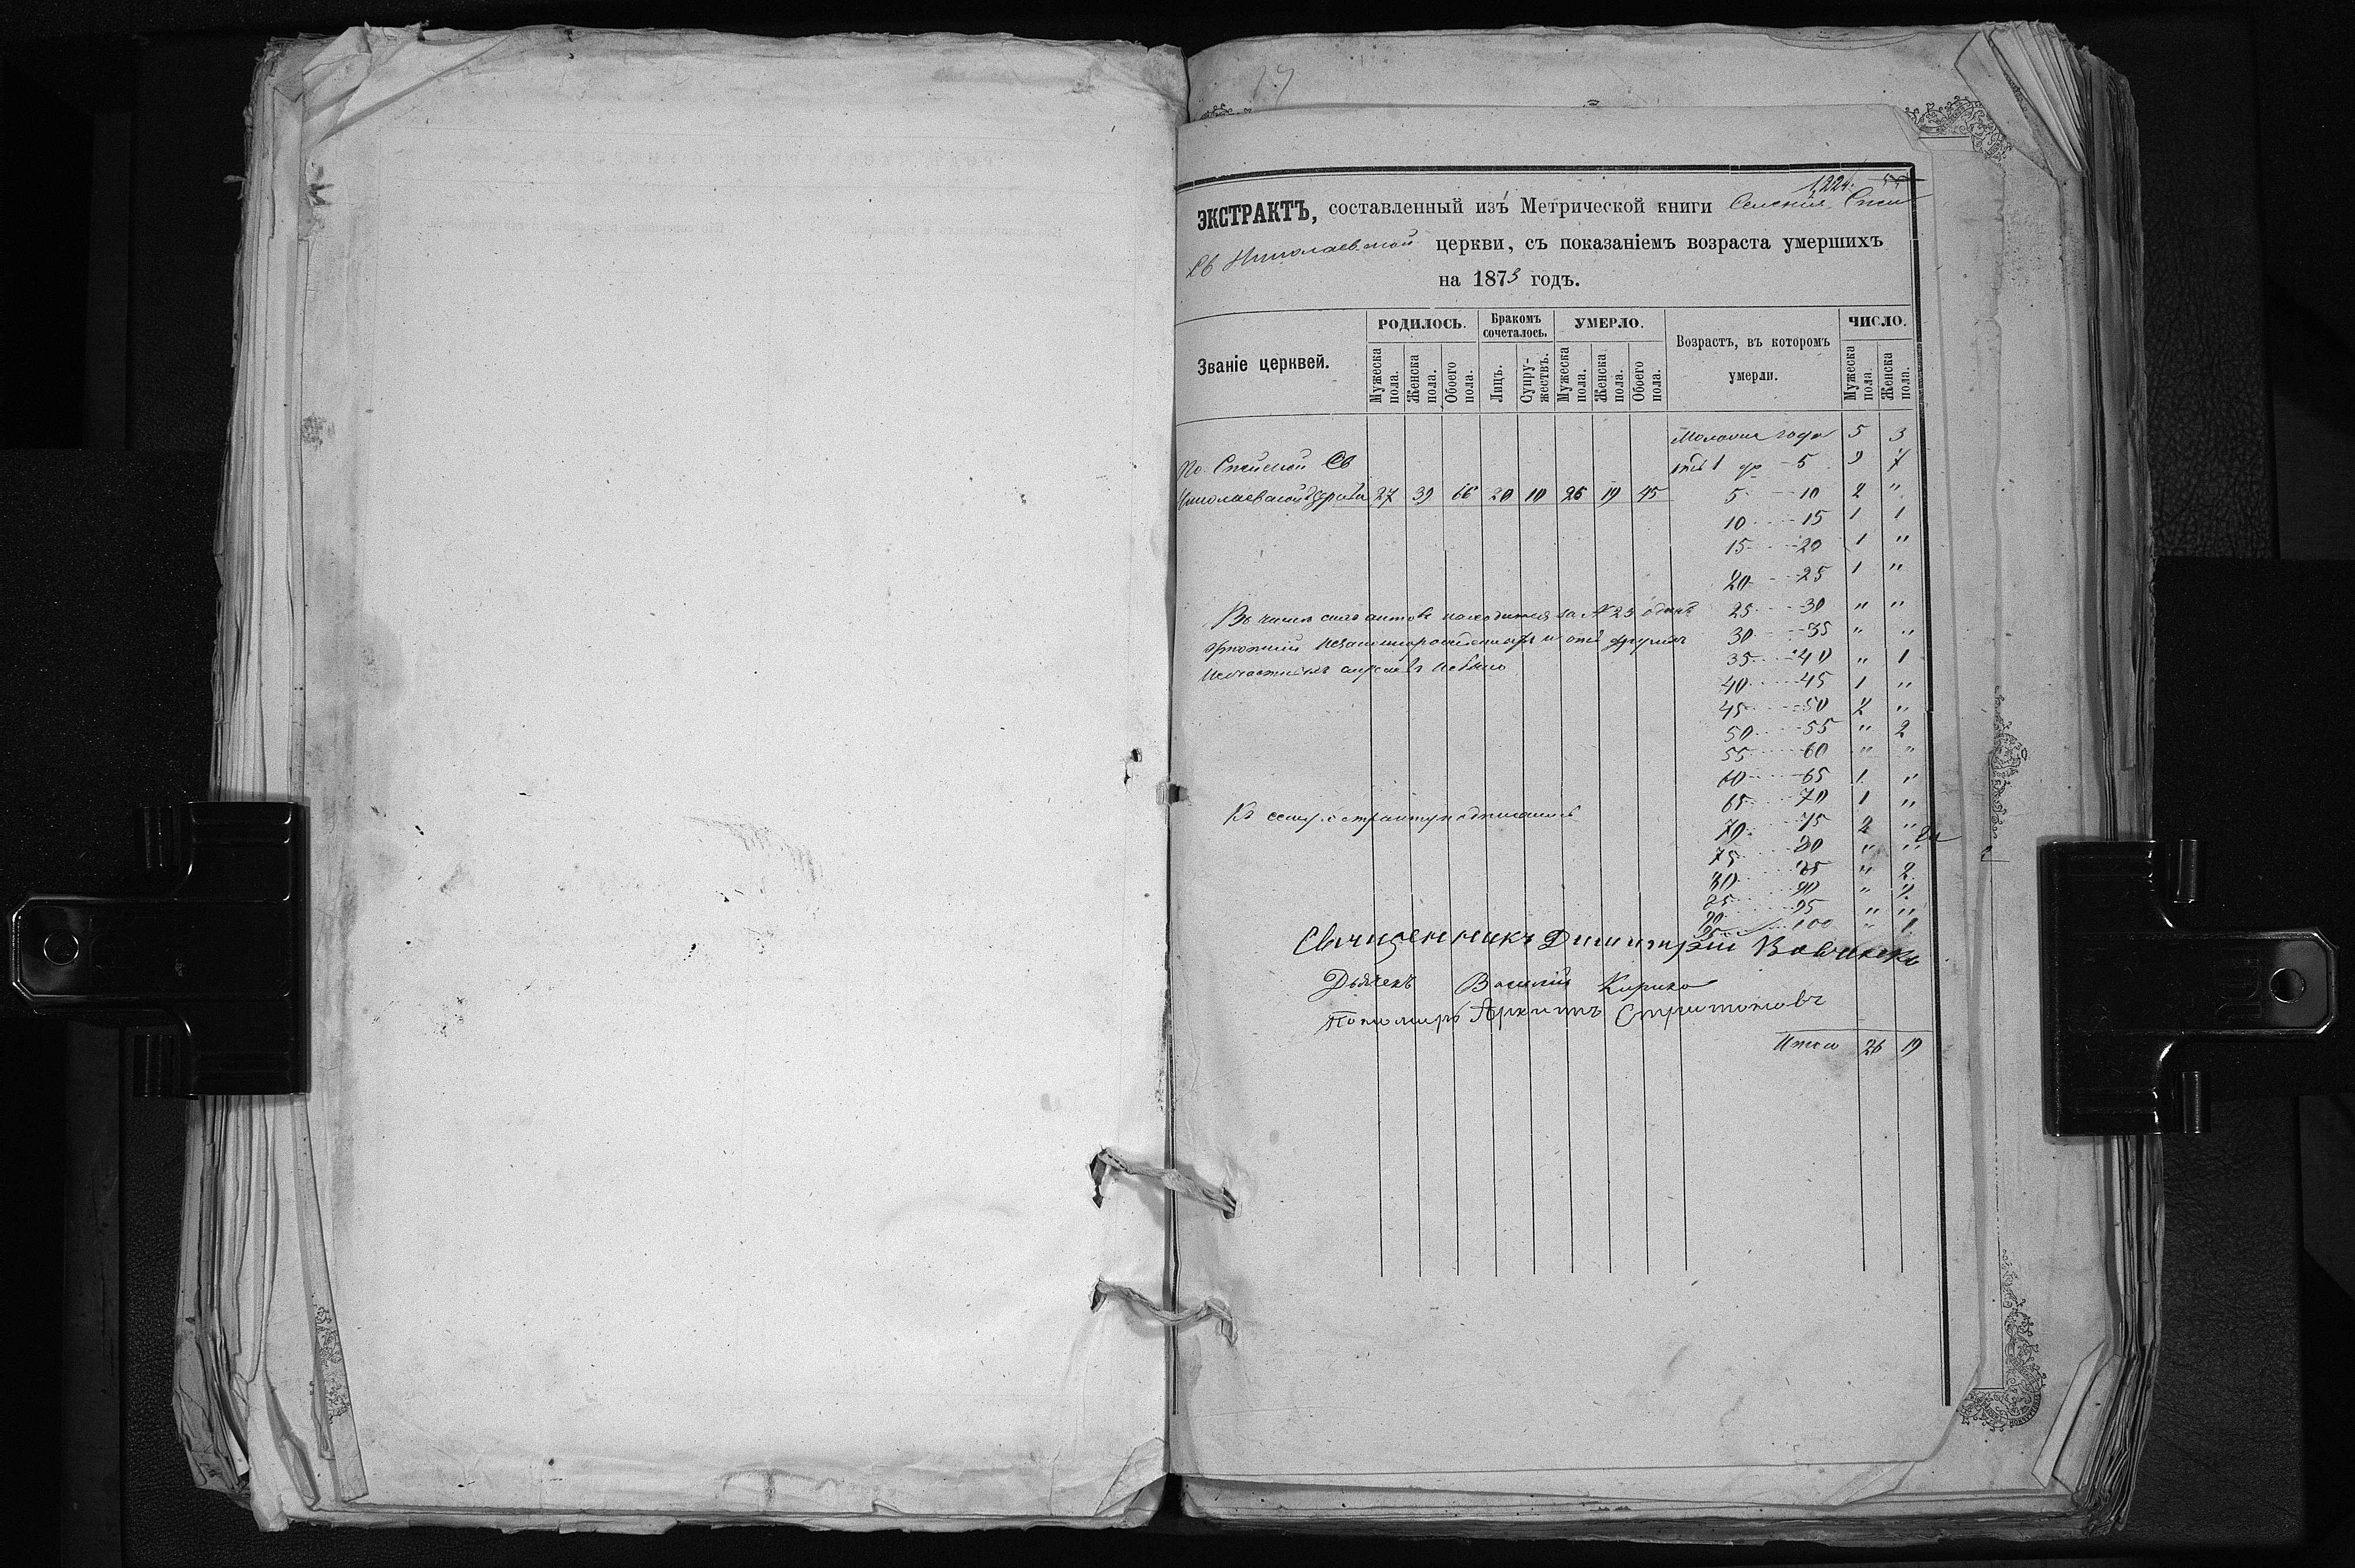 1224.
ЭКСТРАКТЪ, составленный изъ Метрической книги Селенія Спеи
Св Николаевской церкви, съ показаніемъ возраста умершихъ
на 1873 годъ.
Званіе церквей.
РОДИЛОСЬ. Бракомъ сочеталось. УМЕРЛО. Возрастъ, въ которомъ умерли. ЧИСЛО.
Мужеска пола. Женска пола. Обоего пола. Лицъ. Супружествъ. Мужеска пола. Женска пола. Обоего пола. Мужеска пола. Женска пола.
По Спейской Св
Николаевской Церкви 27 39 66 20 10 26 19 45
года 5 3
отъ 1 до 5 9 7
5 10 2 "
10 15 1 1
15 20 1 "
20 25 1 "
25 30 " "
30 35 " "
35 40 " 1
40 45 1 "
45 50 2 "
50 55 " 2
55 60 " "
60 65 1 "
65 70 1 "
70 75 2 "
75 80 " "
80 85 " 2
85 90 " 2
90 95 " "
95 100 " 1
Въ числѣ сихъ актовъ находится за № 23 одинъ
незаконнорожденный и отъ другихъ
несчастныхъ случаевъ небыло
Къ сему экстракту подписались
Священникъ Димитрій
Дьячекъ Василій Кирика
Пономарь
Итого 26 19